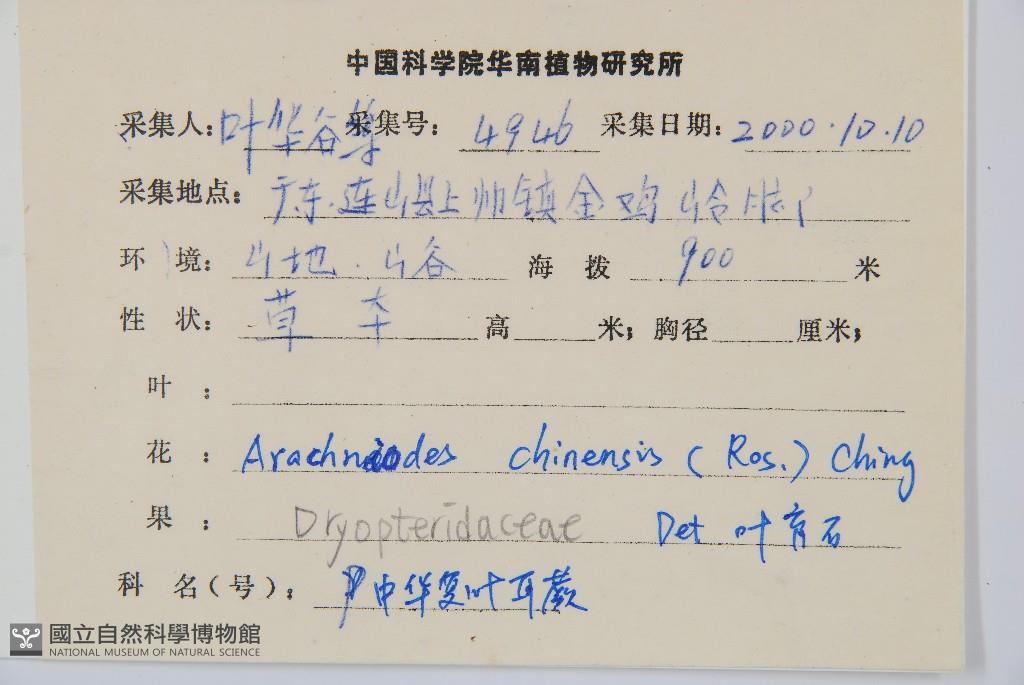 中国科学院华南植物研究所
采集人: 叶华谷等 采集号: 4946 采集日期: 2000.10.10
采集地点: 广东.连山县上帅镇金鸡岭
环 境: 山地.山谷 海 拨 900 米
性 状: 草 本 高 米; 胸径 厘米;
叶 :
花 : Arachniodes chinensis (Ros.) Ching
果 : Dryopteridaceae Det 叶育石
科 名(号): 中华复叶耳蕨
國立自然科學博物館
NATIONAL MUSEUM OF NATURAL SCIENCE